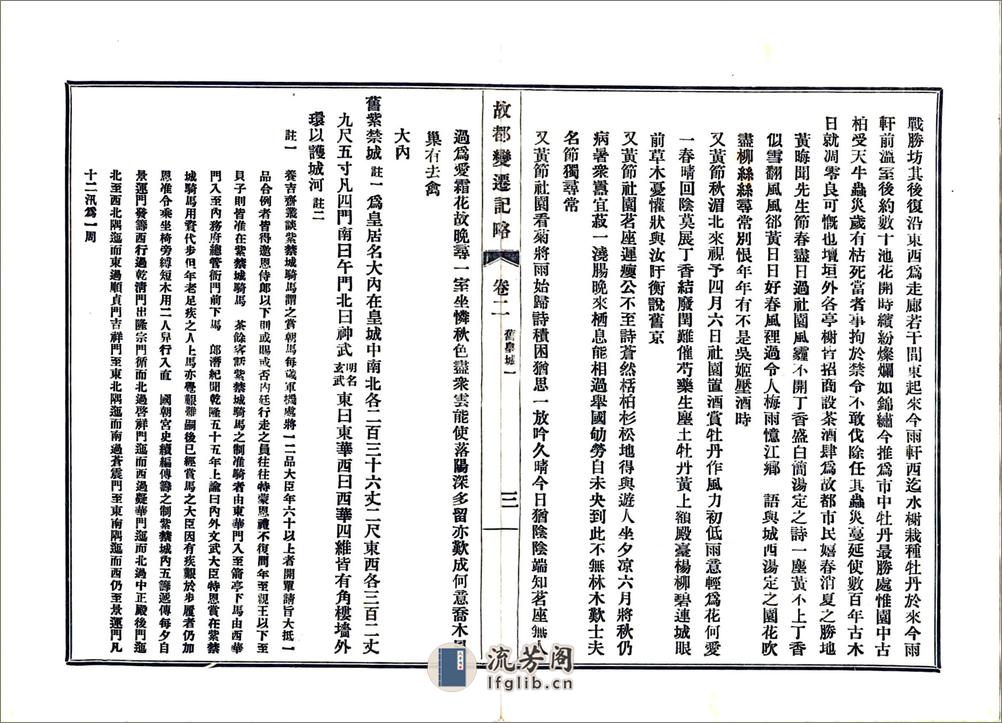 戰勝坊其後復沿東西為走廊若干間東起來今雨軒西迄水榭栽種牡丹於來今雨
軒前溫室後約數十池花開時繽紛燦爛如錦繡今推為市中牡丹最勝處惟園中古
柏受天牛蟲災歲有枯死當者事拘於禁令不敢伐除任其蟲災蔓延使數百年古木
日就凋零良可慨也壇垣外各亭榭皆招商設茶酒肆為故都市民嬉春消夏之勝地
黃晦聞先生節春盡日過社園風霾不開丁香盛白簡湯定之詩一塵黃不上丁香
似雪翻風風郤黃日日好春風裡過令人梅雨憶江鄉　語與城西湯定之園花吹
盡柳絲絲尋常別恨年年有不是吳姬壓酒時
又黃節秋湄北來視予四月六日社園置酒賞牡丹作風力初低雨意輕為花何愛
一春晴回陰莫展丁香結廢閏難催芍藥生塵土牡丹黃上額殿臺楊柳碧連城眼
前草木憂懽狀與汝盱衡說舊京
又黃節社園茗座遲癭公不至詩蒼然栝柏杉松地得與遊人坐夕凉六月將秋仍
病暑衆囂宜菽一澆腸晚來栖息能相過舉國劬勞自未央到此不無林木歎士夫
名節獨尋常
又黃節社園看菊將雨始歸詩積困猶思一放吟久晴今日猶陰陰端知茗座無人
故都變遷記略
卷二
舊皇城一
三
過為愛霜花故晚尋一室坐憐秋色盡衆雲能使落陽深多留亦歎成何意喬木
巢有去禽
大內
舊紫禁城註一為皇居名大內在皇城中南北各二百三十六丈二尺東西各三百二丈
九尺五寸凡四門南曰午門北曰神武明名玄武東曰東華西曰西華四維皆有角樓墻外
環以護城河註二
註一　養吉齋叢談紫禁城騎馬謂之賞朝馬每歲軍機處將一二品大臣年六十以上者開單請旨大抵一
品合例者皆得邀恩侍郎以下則或賜或否內廷行走之員往往特蒙恩禮不復問年至親王以下至
貝子則皆准在紫禁城騎馬　茶餘客話紫禁城騎馬之制准騎者由東華門入至箭亭下馬由西華
門入至內務府總管衙門前下馬　郎潛紀聞乾隆五十五年上諭曰內外文武大臣特恩賞在紫禁
城騎馬用資代步但年老足疾之人上馬亦覺艱難嗣後已經賞馬之大臣因有疾艱於步履者仍加
恩准令乘坐椅旁縛短木用二人舁行入直　國朝宮史續編傳籌之制紫禁城內五籌遞傳每夕自
景運門發籌西行過乾清門出隆宗門循而北過啓祥門迤而西過凝華門迤而北過中正殿後門迤
北至西北隅迤而東過順貞門吉祥門至東北隅迤而南過蒼震門至東南隅迤而西仍至景運門凡
十二汛為一周
流芳閣
lfglib.cn